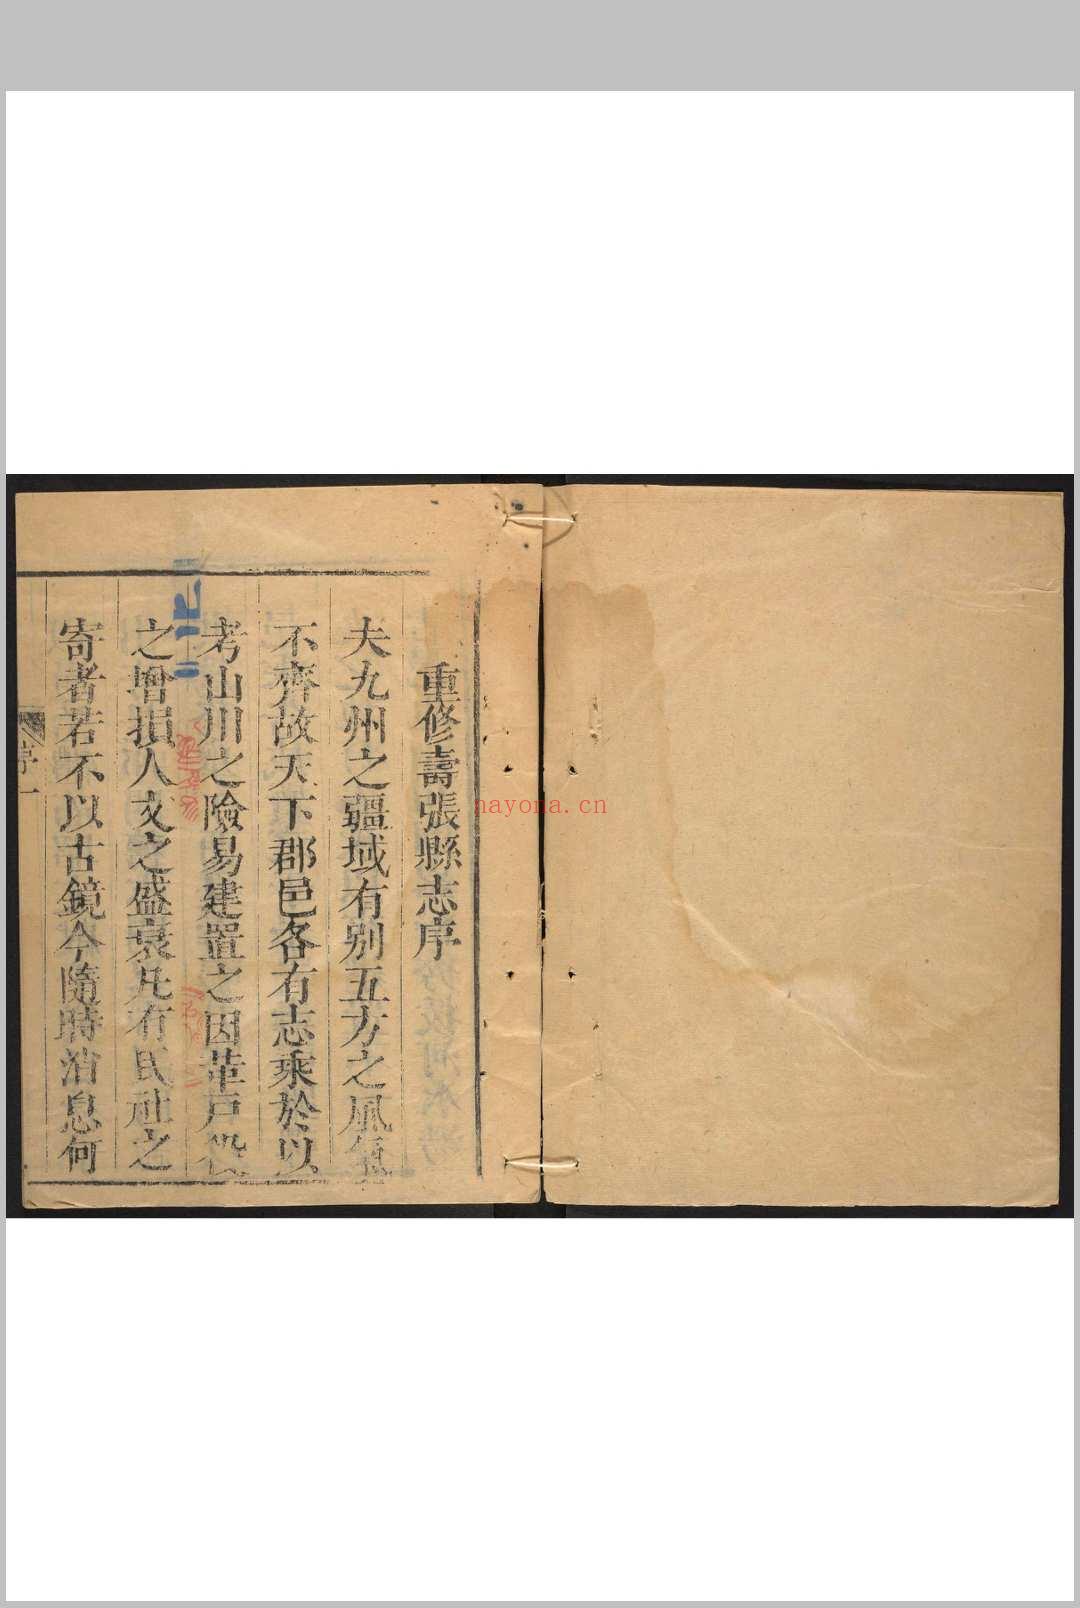 重修壽張縣志序
夫九州之疆域有别五方之風氣
不齊故天下郡邑各有志乘於以
考山川之險易建置之因革戸役
之增損人文之盛衰凡有民社之
寄者若不以古鏡今隨時消息何
序一
nayona.cn